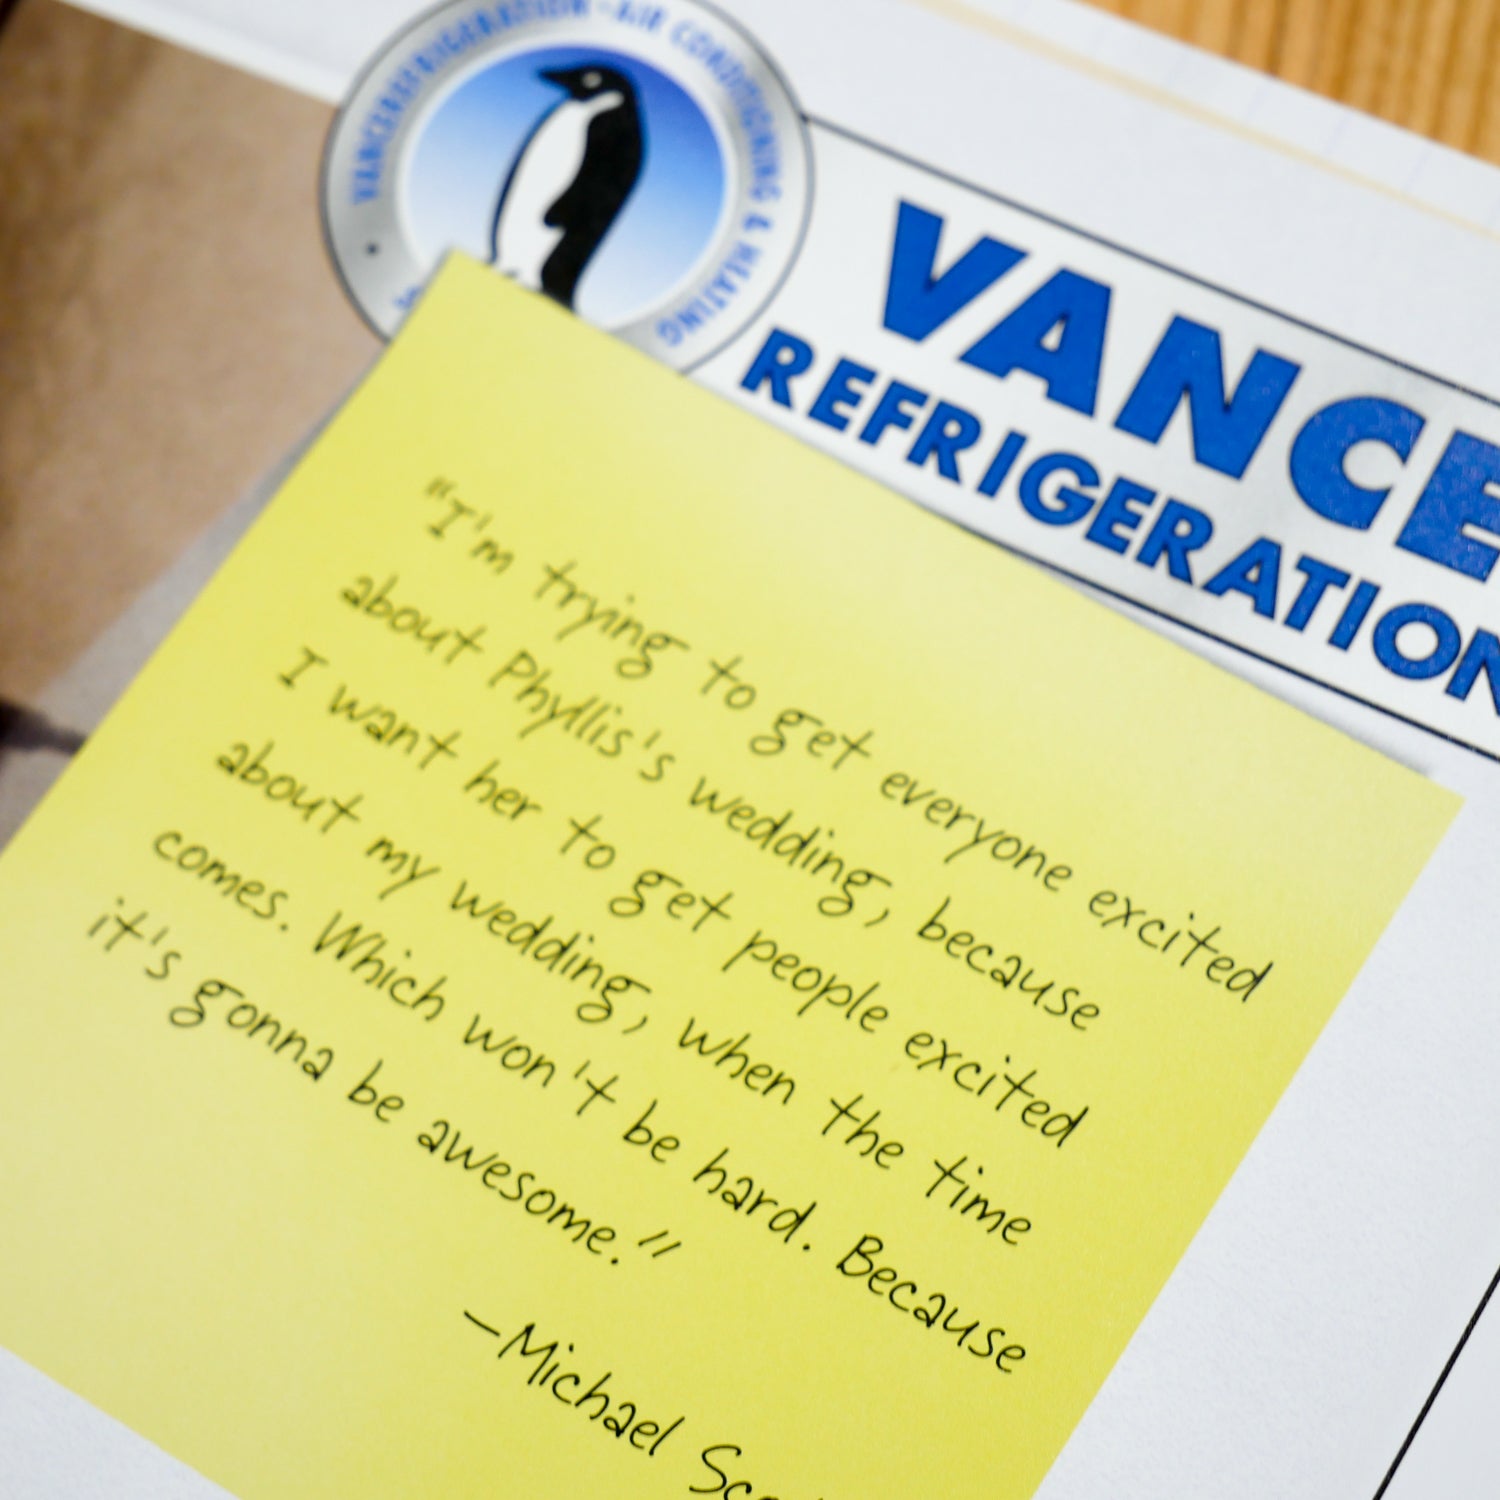 VANCE REFRIGERATION • AIR CONDITIONING & HEATING
VANCE
REFRIGERATION
"I'm trying to get everyone excited
about Phyllis's wedding, because
I want her to get people excited
about my wedding, when the time
comes. Which won't be hard. Because
it's gonna be awesome."
—Michael